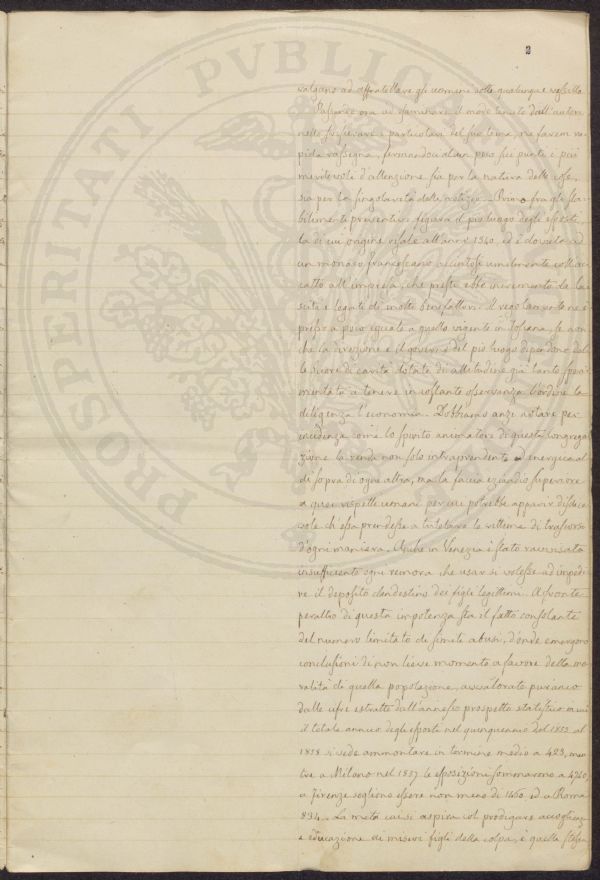 2
valgono ad affratellare gli uomini sotto qualunque vessillo.
Passando ora ad esaminare il modo tenuto dall'autore
nello sviscerare i particolari del suo tema, ne farem ra-
pida rassegna, fermandoci alcun poco sui punti i più
meritevoli d'attenzione sia per la natura delle cose,
sia per la singolarità delle notizie. Primo fra gli sta-
bilimenti presentasi figura il pio luogo degli esposti
la di cui origine risale all'anno 1340, ed è dovuta ad
un monaco francescano accintosi umilmente coll'ac-
catto all'impresa, che presto ebbe incremento da la-
sciti e legati di molti benefattori. Il regolamento ne è
presso a poco eguale a quello vigente in Toscana, se non
che la direzione e il governo del pio luogo dipendono dal-
le suore di carità dotate di attitudine già tanto speri-
mentata a tenere in costante osservanza l'ordine la
diligenza l'economia. Dobbiamo anzi notare per
incidenza come lo spirito animatore di questa congrega-
zione la rende non solo intraprendente ed energica al
di sopra di ogni altra, ma la faccia eziandio superiore
a quei rispetti umani per cui potrebbe apparir disdice-
vole ch'essa prendesse a tutelare le vittime di trascorsi
d'ogni maniera. Anche in Venezia è stato ravvisato
insufficiente ogni remora che usar si volesse ad impedi-
re il deposito clandestino dei figli legittimi. A fronte
peraltro di questa impotenza sta il fatto consolante
del numero limitato di simili abusi, d'onde emergono
conclusioni di non lieve momento a favore della mo-
ralità di quella popolazione, avvalorate pur anco
dalle cifre estratte dall'annesso prospetto statistico in cui
il totale annuo degli esposti nel quinquennio dal 1853 al
1858 si vede ammontare in termine medio a 423, men-
tre a Milano nel 1857 le esposizioni sommarono a
a Firenze sogliono essere non meno di ed a Roma
834. La meta cui si aspira col prodigare accoglienza
e educazione ai miseri figli della colpa, è quella stessa
PROSPERITATI PVBLICAE